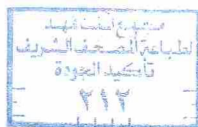 مجمع الملك فهد
لطباعة المصحف الشريف
تأكيد الجودة
٢١٢